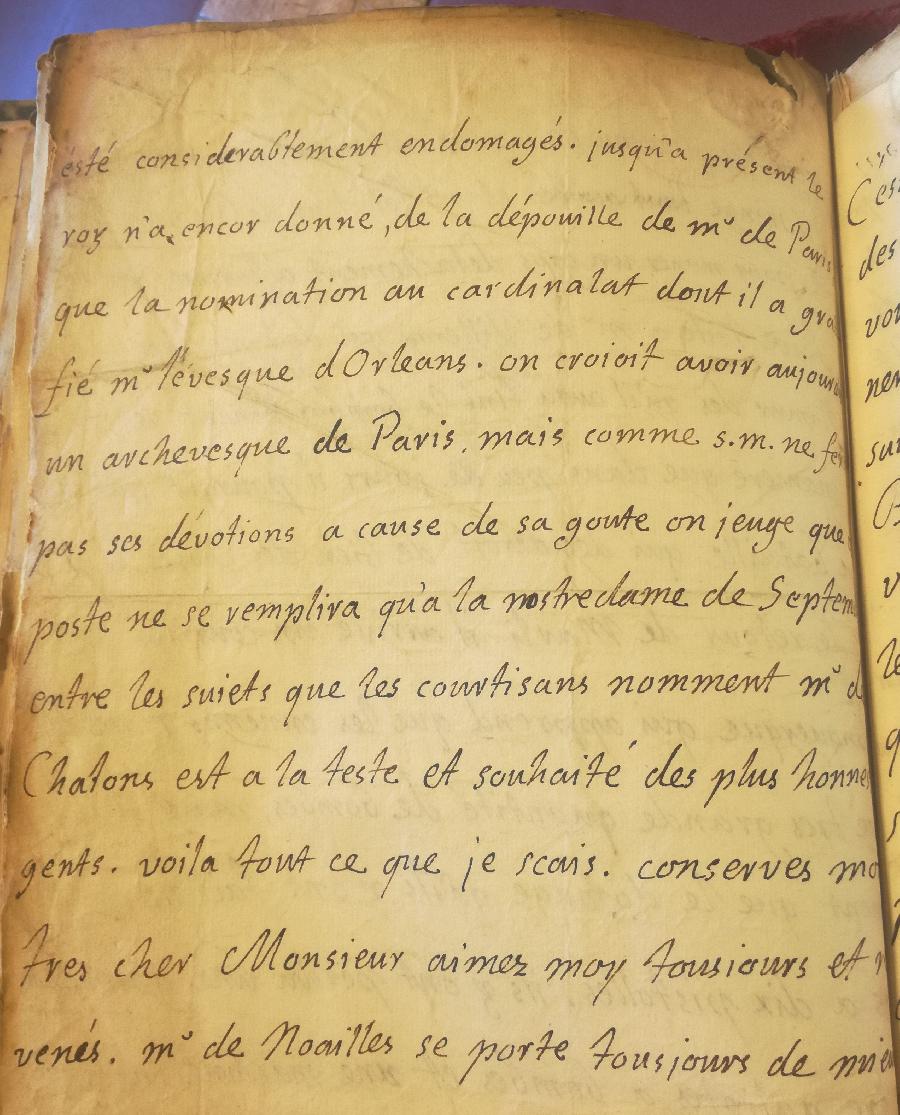 esté considerablement endomagés. jusqu'a présent le
roy n'a encor donné, de la dépouille de mr de Paris
que la nomination au cardinalat dont il a gra
fié mr l'évesque d'Orleans. on croioit avoir aujourd
un archevesque de Paris, mais comme s.m. ne fer
pas ses dévotions a cause de sa goute on jeuge que
poste ne se remplira qu'a la nostredame de Septem
entre les suiets que les courtisans nomment mr d
Chalons est a la teste et souhaité des plus honne
gents. voila tout ce que je scais. conserves mo
tres cher Monsieur aimez moy tousiours et r
venés. mr de Noailles se porte tousjours de mieu
C'es
des
vou
ner
sur
B
v
le
q